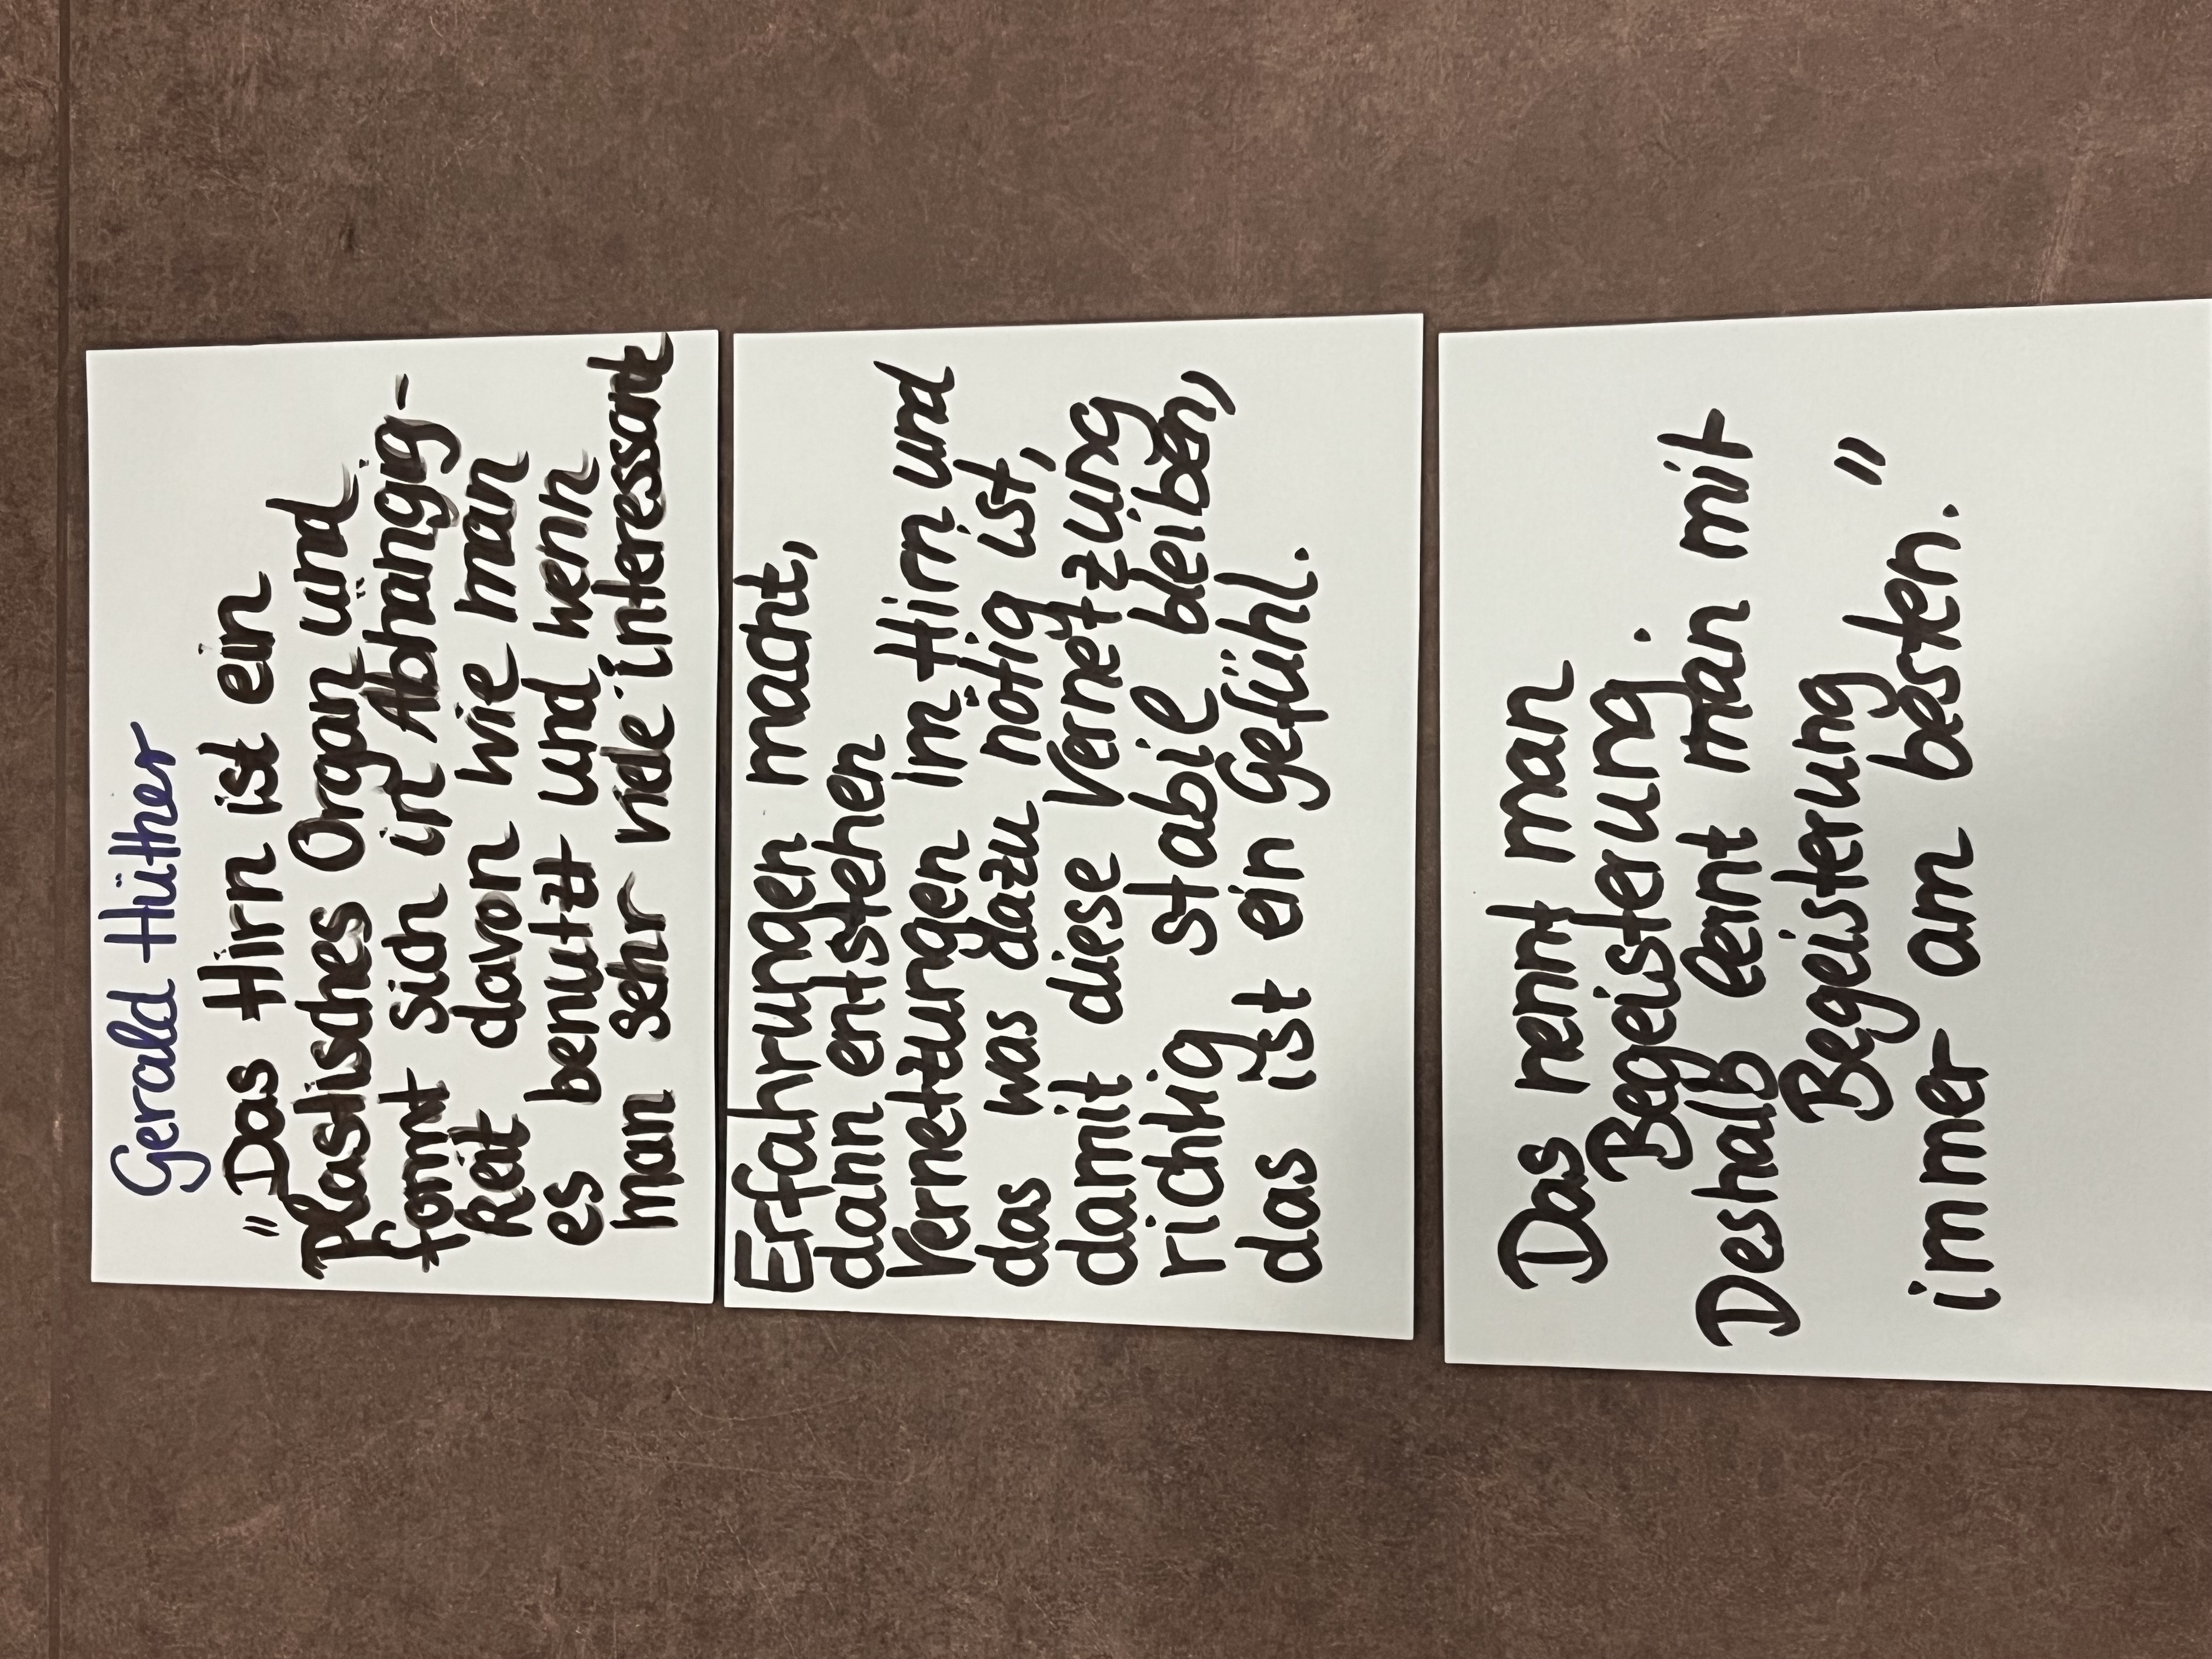 Gerald Hüther
"Das Hirn ist ein
plastisches Organ und
formt sich in Abhängig-
keit davon wie man
es benutzt und wenn
man sehr viele interessante
Erfahrungen macht,
dann entstehen
Vernetzungen im Hirn und
das was dazu nötig ist,
damit diese Vernetzung
richtig stabil bleiben,
das ist ein Gefühl.
Das nennt man
Begeisterung.
Deshalb lernt man mit
Begeisterung
immer am besten."